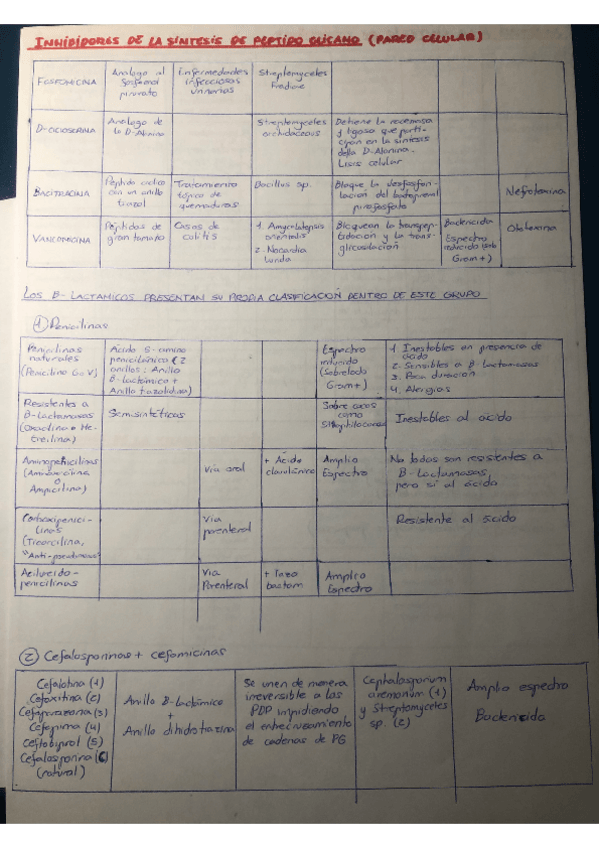 INHIBIDORES DE LA SÍNTESIS DE PEPTIDO GLICANO (PARED CELULAR)
FOSFOMICINA
Análogo al
fosfoenol
piruvato
Enfermedades
infecciosas
urinarias
Streptomyces
fradiae
D-CICLOSERINA
Análogo de
la D-Alanina
Streptomyces
orchidaceous
Detiene la racemasa
y ligasa que parti-
cipan en la síntesis
de la D-Alanina.
Lisis celular
BACITRACINA
Péptido cíclico
con un anillo
tiazol
Tratamiento
tópico de
quemaduras
Bacillus sp.
Bloque la desfosfori-
lación del
pirofosfato
Nefrotoxina
VANCOMICINA
Péptidos de
gran tamaño
Casos de
colitis
1. Amycolatopsis
orientalis
2. Nocardia
lurida
Bloquean la transpep-
tidación y la trans-
glicosilación
Bactericida
Espectro
reducido (sobre
Gram +)
Ototoxina
LOS B-LACTÁMICOS PRESENTAN SU PROPIA CLASIFICACIÓN DENTRO DE ESTE GRUPO
① Penicilinas
Penicilinas
naturales
(Penicilina G o V)
Ácido 6-amino
penicilánico (2
anillos: Anillo
B-lactámico +
Anillo tiazolidina)
Espectro
reducido
(Sobretodo
Gram +)
1. Inestables en presencia de
ácido
2. Sensibles a B-lactamasas
3. Poca duración
4. Alergias
Resistentes a
B-Lactamasas
(Oxacilina o Me-
ticilina)
Semisintéticas
Sobre cocos
como
Staphilococos
Inestables al ácido
Aminopenicilinas
(Amoxicilina
o
Ampicilina)
Vía oral
+ Ácido
clavulánico
Amplio
Espectro
No todas son resistentes a
B-Lactamasas,
pero sí al ácido
Carboxipenici-
linas
(Ticarcilina,
"Anti-pseudomonas)
Vía
parenteral
Resistente al ácido
Acilureido-
penicilinas
Vía
Parenteral
+ Tazo
bactam
Amplio
Espectro
② Cefalosporinas + cefamicinas
Cefalotina (1)
Cefoxitina (2)
Cefoperazona (3)
Cefepima (4)
Ceftobiprol (5)
Cefalosporina (C)
(natural)
Anillo B-lactámico
+
Anillo dihidrotiazina
Se unen de manera
irreversible a las
PBP impidiendo
el entrecruzamiento
de cadenas de PG
Cephalosporium
acremonium (1)
y Streptomyces
sp. (2)
Amplio espectro
Bactericida